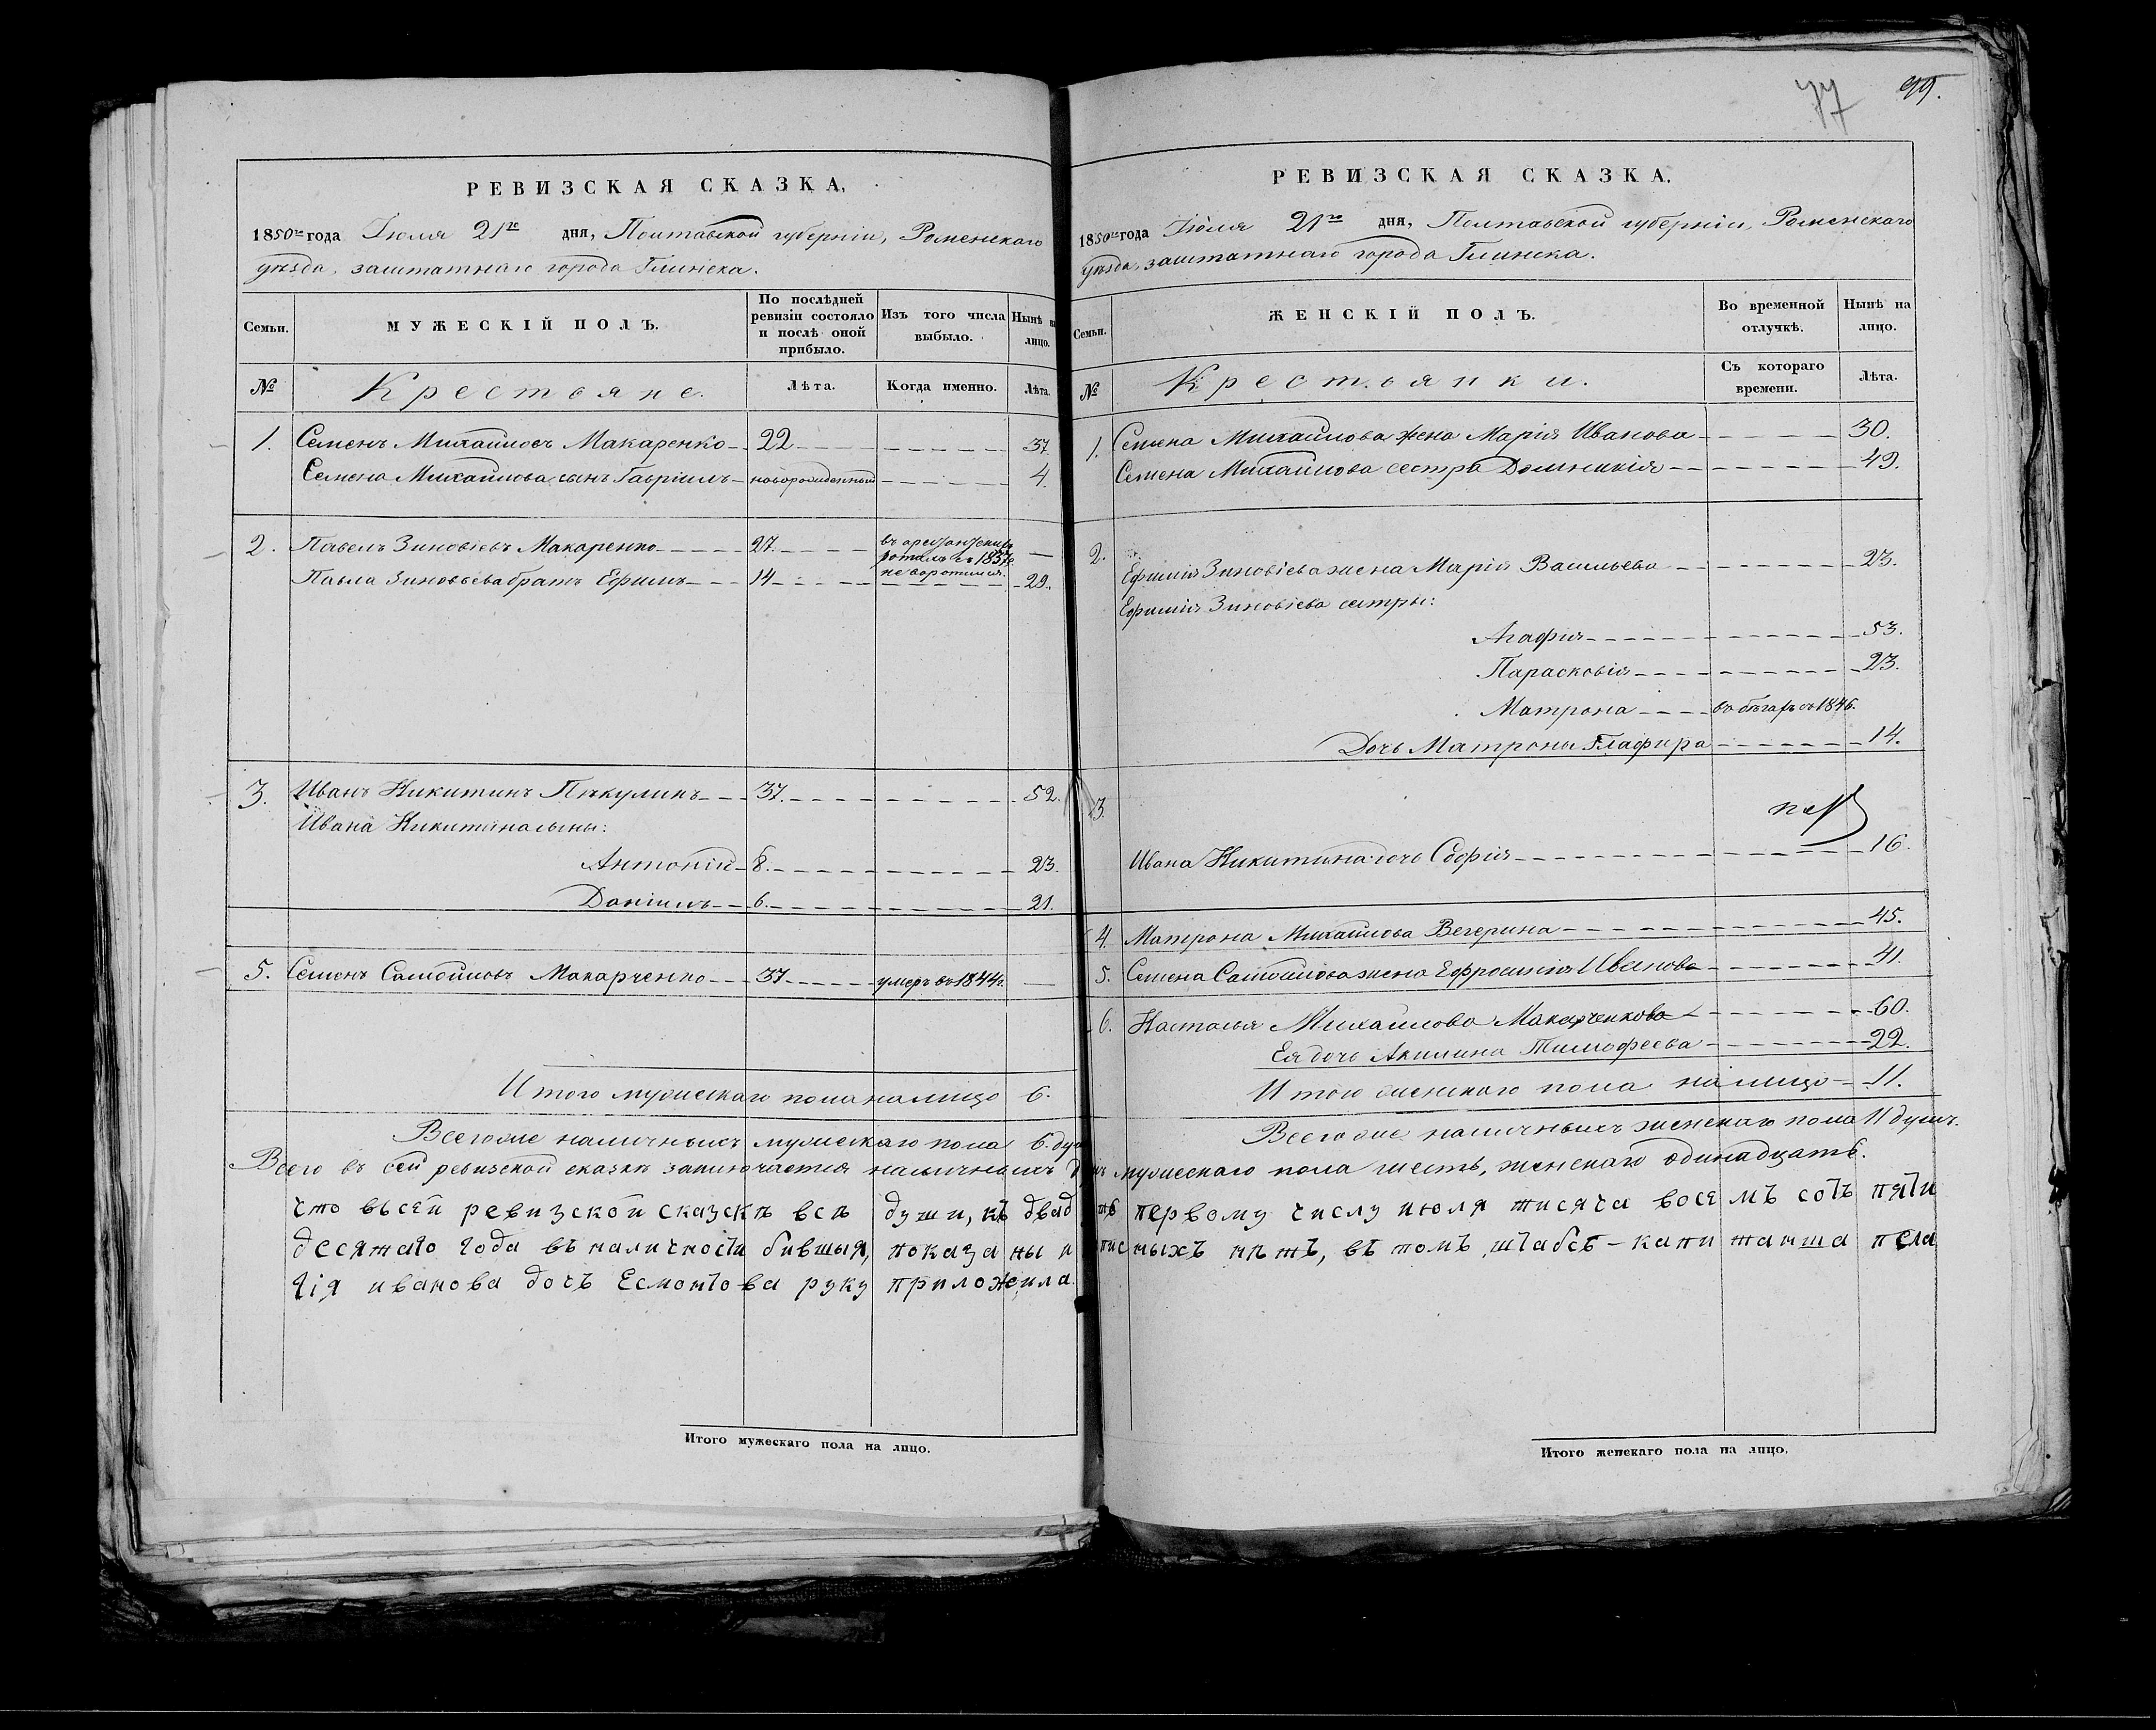 РЕВИЗСКАЯ СКАЗКА,
1850го года Іюля 21го дня, Полтавской губерніи, Роменскаго
уѣзда, заштатнаго города Глинска.
Семьи.
МУЖЕСКІЙ ПОЛЪ.
По послѣдней ревизіи состояло и послѣ оной прибыло.
Изъ того числа выбыло.
Нынѣ на лицо.
№
Крестьяне.
Лѣта.
Когда именно.
Лѣта.
1. Семенъ Михайловъ Макаренко 22 37.
Семена Михайлова сынъ Гавріилъ новорожденный 4.
2. Павелъ Зиновіевъ Макаренко 27. въ арестантскихъ
ротахъ съ 1837г.
не воротился.
Павла Зиновьева братъ Ефимъ 14 29.
3. Иванъ Никитинъ Пѣкулинъ 37. 52.
Ивана Никитина сыны:
Антоній 8. 23.
Даніилъ 6. 21.
5. Семенъ Самойловъ Макарченко 37 умеръ въ 1844г.
Итого мужескаго пола на лицо 6.
Всего же наличныхъ мужескаго пола 6. душ
Всего въ сей ревизской сказкѣ заключается наличныхъ
что въсей ревизской сказскѣ всѣ души, къ двад
десятаго года въ наличности бившыя, показаны и
гія иванова дочъ Есмонтова руку приложила.
Итого мужескаго пола на лицо.
77 99.
РЕВИЗСКАЯ СКАЗКА.
1850го года Іюля 21го дня, Полтавской губерніи, Роменскаго
уѣзда, заштатнаго города Глинска.
Семьи.
ЖЕНСКІЙ ПОЛЪ.
Во временной отлучкѣ.
Нынѣ на лицо.
№
Крестьянки.
Съ котораго времени.
Лѣта.
1. Семена Михайлова жена Марія Иванова 30.
Семена Михайлова сестра Домникія 49.
2.
Ефимія Зиновіева жена Марія Васильева 23.
Ефимія Зиновіева сестры:
Агафія 53.
Парасковія 23.
Матрона въ бѣгахъ съ 1846.
Дочь Матроны Глафира 14.
3.
Ивана Никитина дочь Софія 16.
4. Матрона Михайлова Вегерина 45.
5. Семена Самойлова жена Ефросинія Иванова 41.
6. Настасья Михайлова Макарченкова 60.
Ея дочь Акилина Тимофеева 22.
Итого женскаго пола на лицо 11.
Всего же наличныхъ женскаго пола 11 душъ.
мужескаго пола шесть, женскаго одинадцать.
первому числу июля тисяча восемъ сотъ пяти
ныхъ нѣтъ, въ томъ штабсъ-капитанша пела
Итого женскаго пола на лицо.